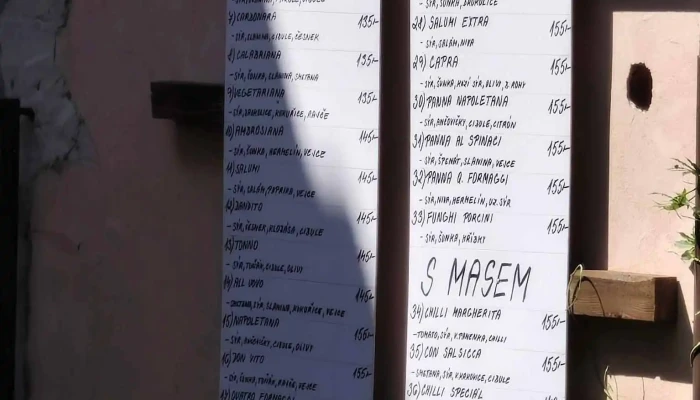 7) CARBONARA 135,-
- SÝR, SLANINA, CIBULE, ČESNEK
8) CALABRIANA 135,-
- SÝR, ŠUNKA, SLANINA, SMETANA
9) VEGETARIANA 135,-
- SÝR, BROKOLICE, KUKUŘICE, RAJČE
10) AMBROSIANA 145,-
- SÝR, ŠUNKA, HERMELÍN, VEJCE
11) SALUMI 145,-
- SÝR, SALÁM, PAPRIKA, VEJCE
12) BANDITO 145,-
- SÝR, ČESNEK, KLOBÁSA, CIBULE
13) TONNO 145,-
- SÝR, TUŇÁK, CIBULE, OLIVY
14) ALL UOVO 145,-
- SMETANA, SÝR, SLANINA, KUKUŘICE, VEJCE
15) NAPOLETANA 155,-
- SÝR, ANČOVIČKY, CIBULE, OLIVY
16) DON VITO 155,-
- SÝR, ŠUNKA, TUŇÁK, RAJČE, VEJCE
17) QUATRO FORMAGGI
- SÝR, ŠUNKA, BROKOLICE
28) SALUMI EXTRA 155,-
- SÝR, SALÁM, NIVA
29) CAPRA 155,-
- SÝR, ŠUNKA, KOZÍ SÝR, OLIVA, B. ROHY
30) PANNA NAPOLETANA 155,-
- SÝR, ANČOVIČKY, CIBULE, CITRÓN
31) PANNA AL SPINACI 155,-
- SÝR, ŠPENÁT, SLANINA, VEJCE
32) PANNA Q. FORMAGGI 155,-
- SÝR, NIVA, HERMELÍN, UZ. SÝR
33) FUNGHI PORCINI 155,-
- SÝR, ŠUNKA, HŘÍBKY
S MASEM
34) CHILLI MARGHERITA 155,-
- TOMATO, SÝR, CHILLI
35) CON SALSICCA 155,-
- SMETANA, SÝR, CIBULE
36) CHILLI SPECIAL